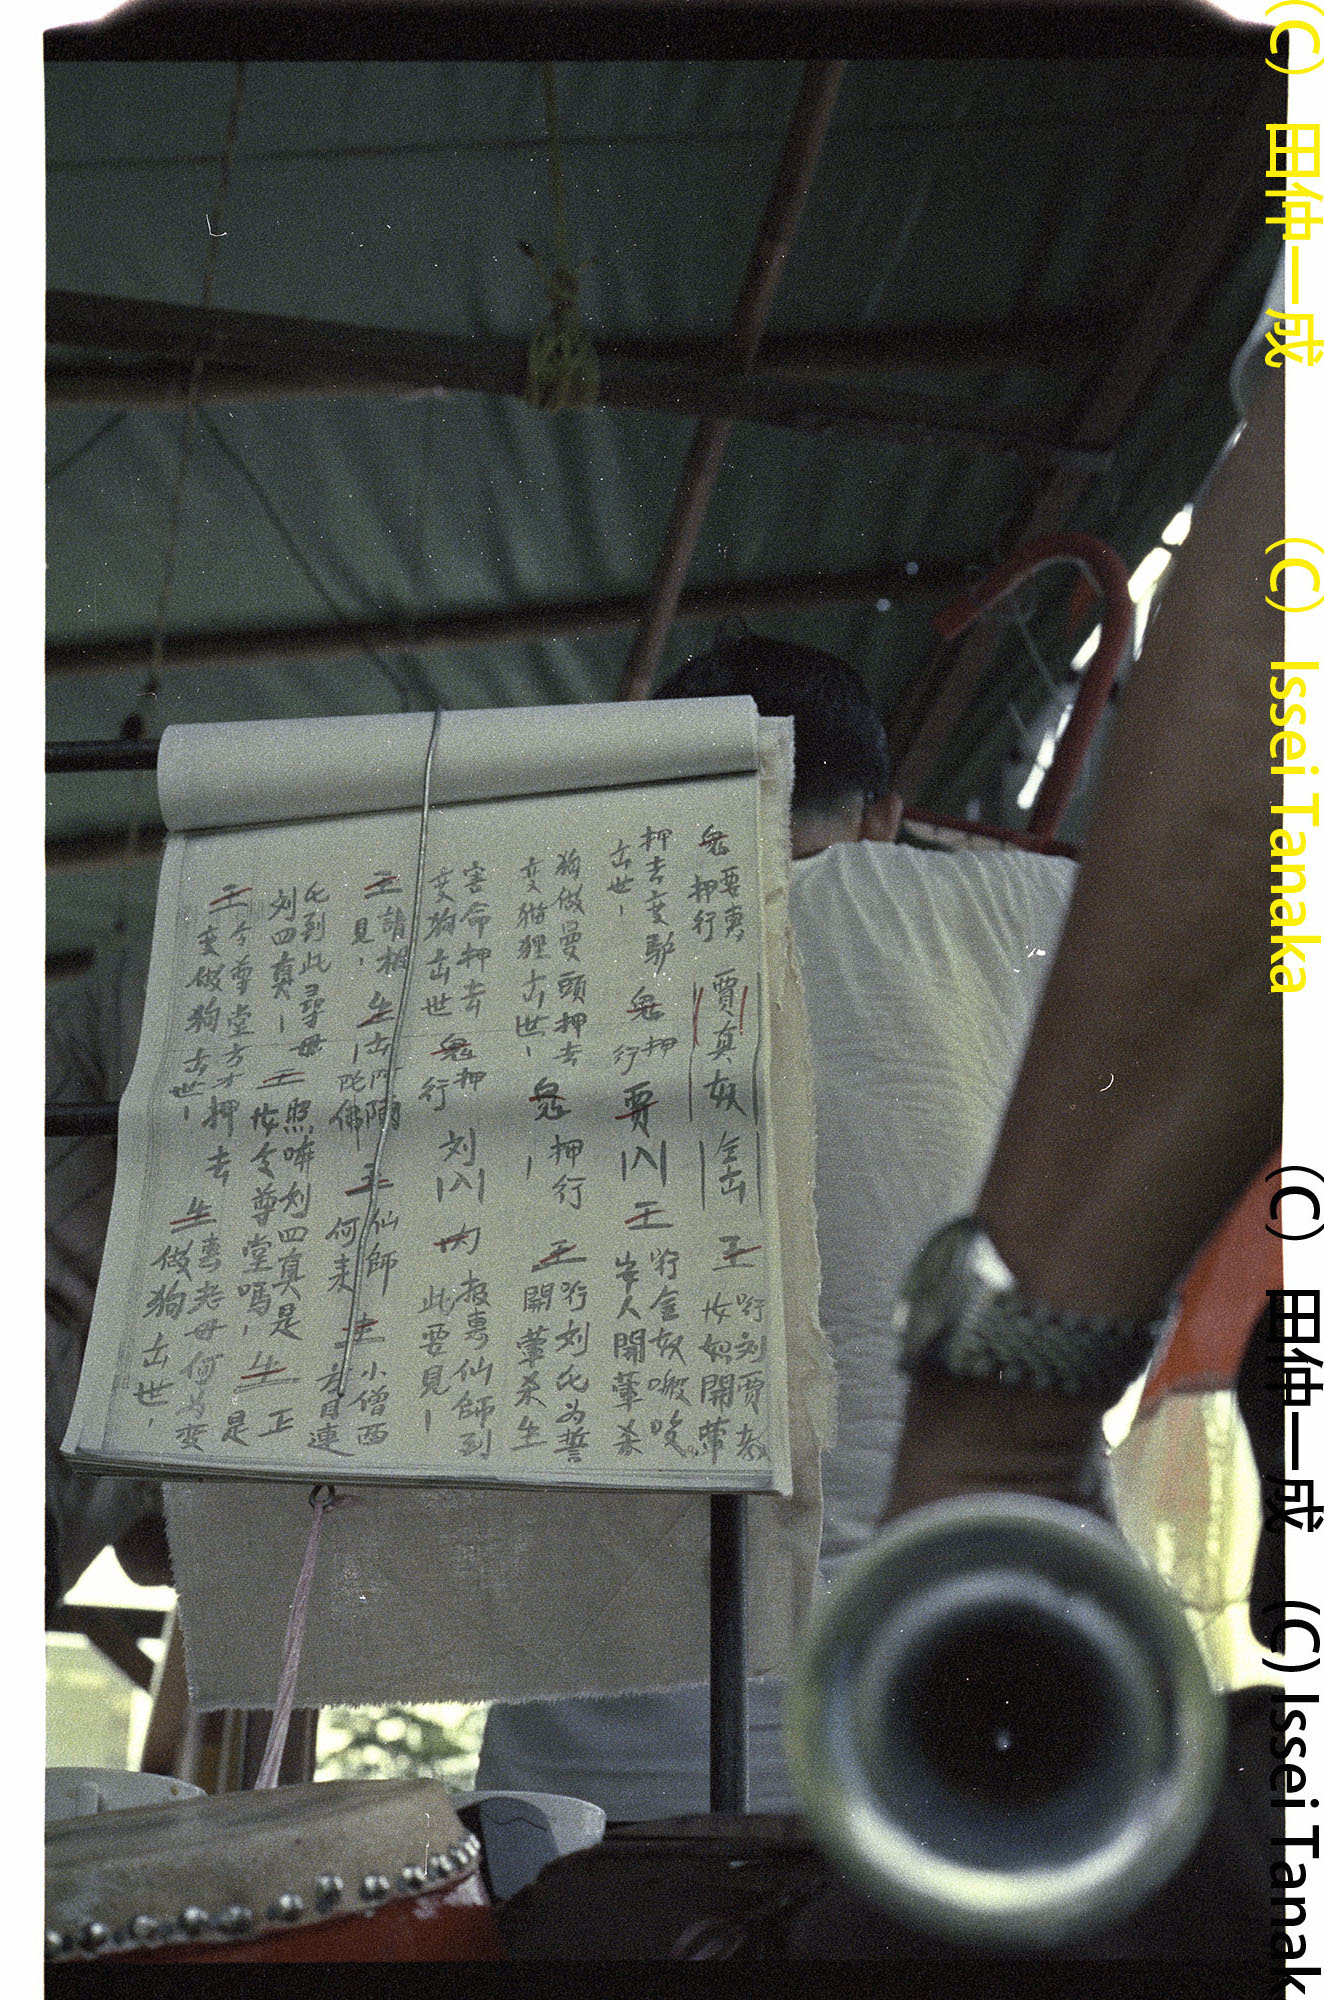 鬼要惠
押行
賈真奴
仝出
王
吩刘賈
奴開葷
押去变馿
出世、
鬼押
行
賈入
王
吩金奴
人開葷杀
狗做曼頭押去
变猫狸出世、
鬼
押行
王
吩刘氏为誓
開葷杀生
害命押去
变狗出世
鬼押
行
刘入
内
报惠仙師到
此要見
王
請相
見、
生出
陀佛
王
仙師
何来
生
小僧西
方目連
氏到此尋母
刘四真
王
照唓刘四真是
汝令尊堂嗎、
生
正
是
王
令尊堂方才押去
变做狗出世、
生
老母何为变
做狗出世、
(C) 田仲一成 (C) Issei Tanaka
(C) 田仲一成 (C) Issei Tanak